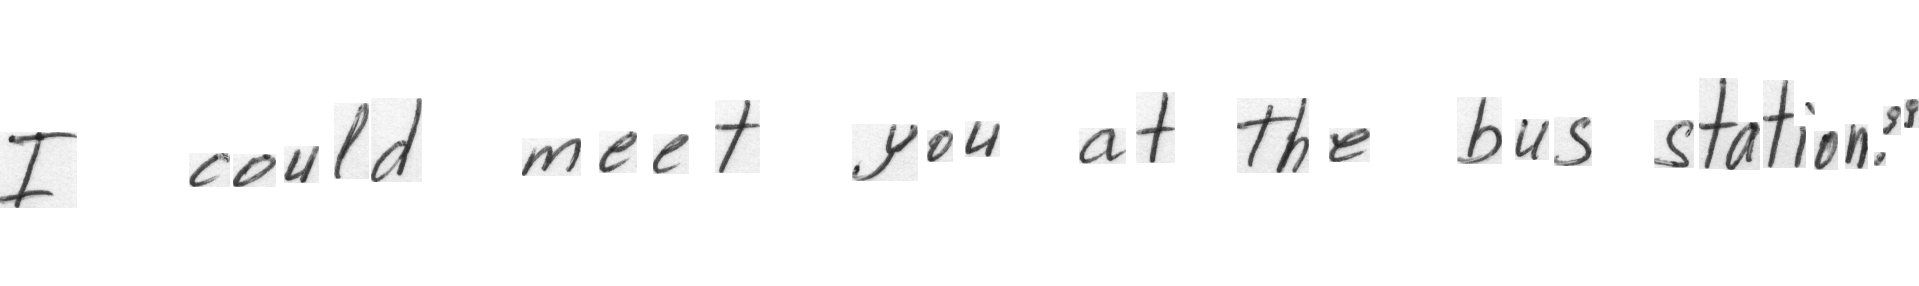 I could meet you at the bus station."